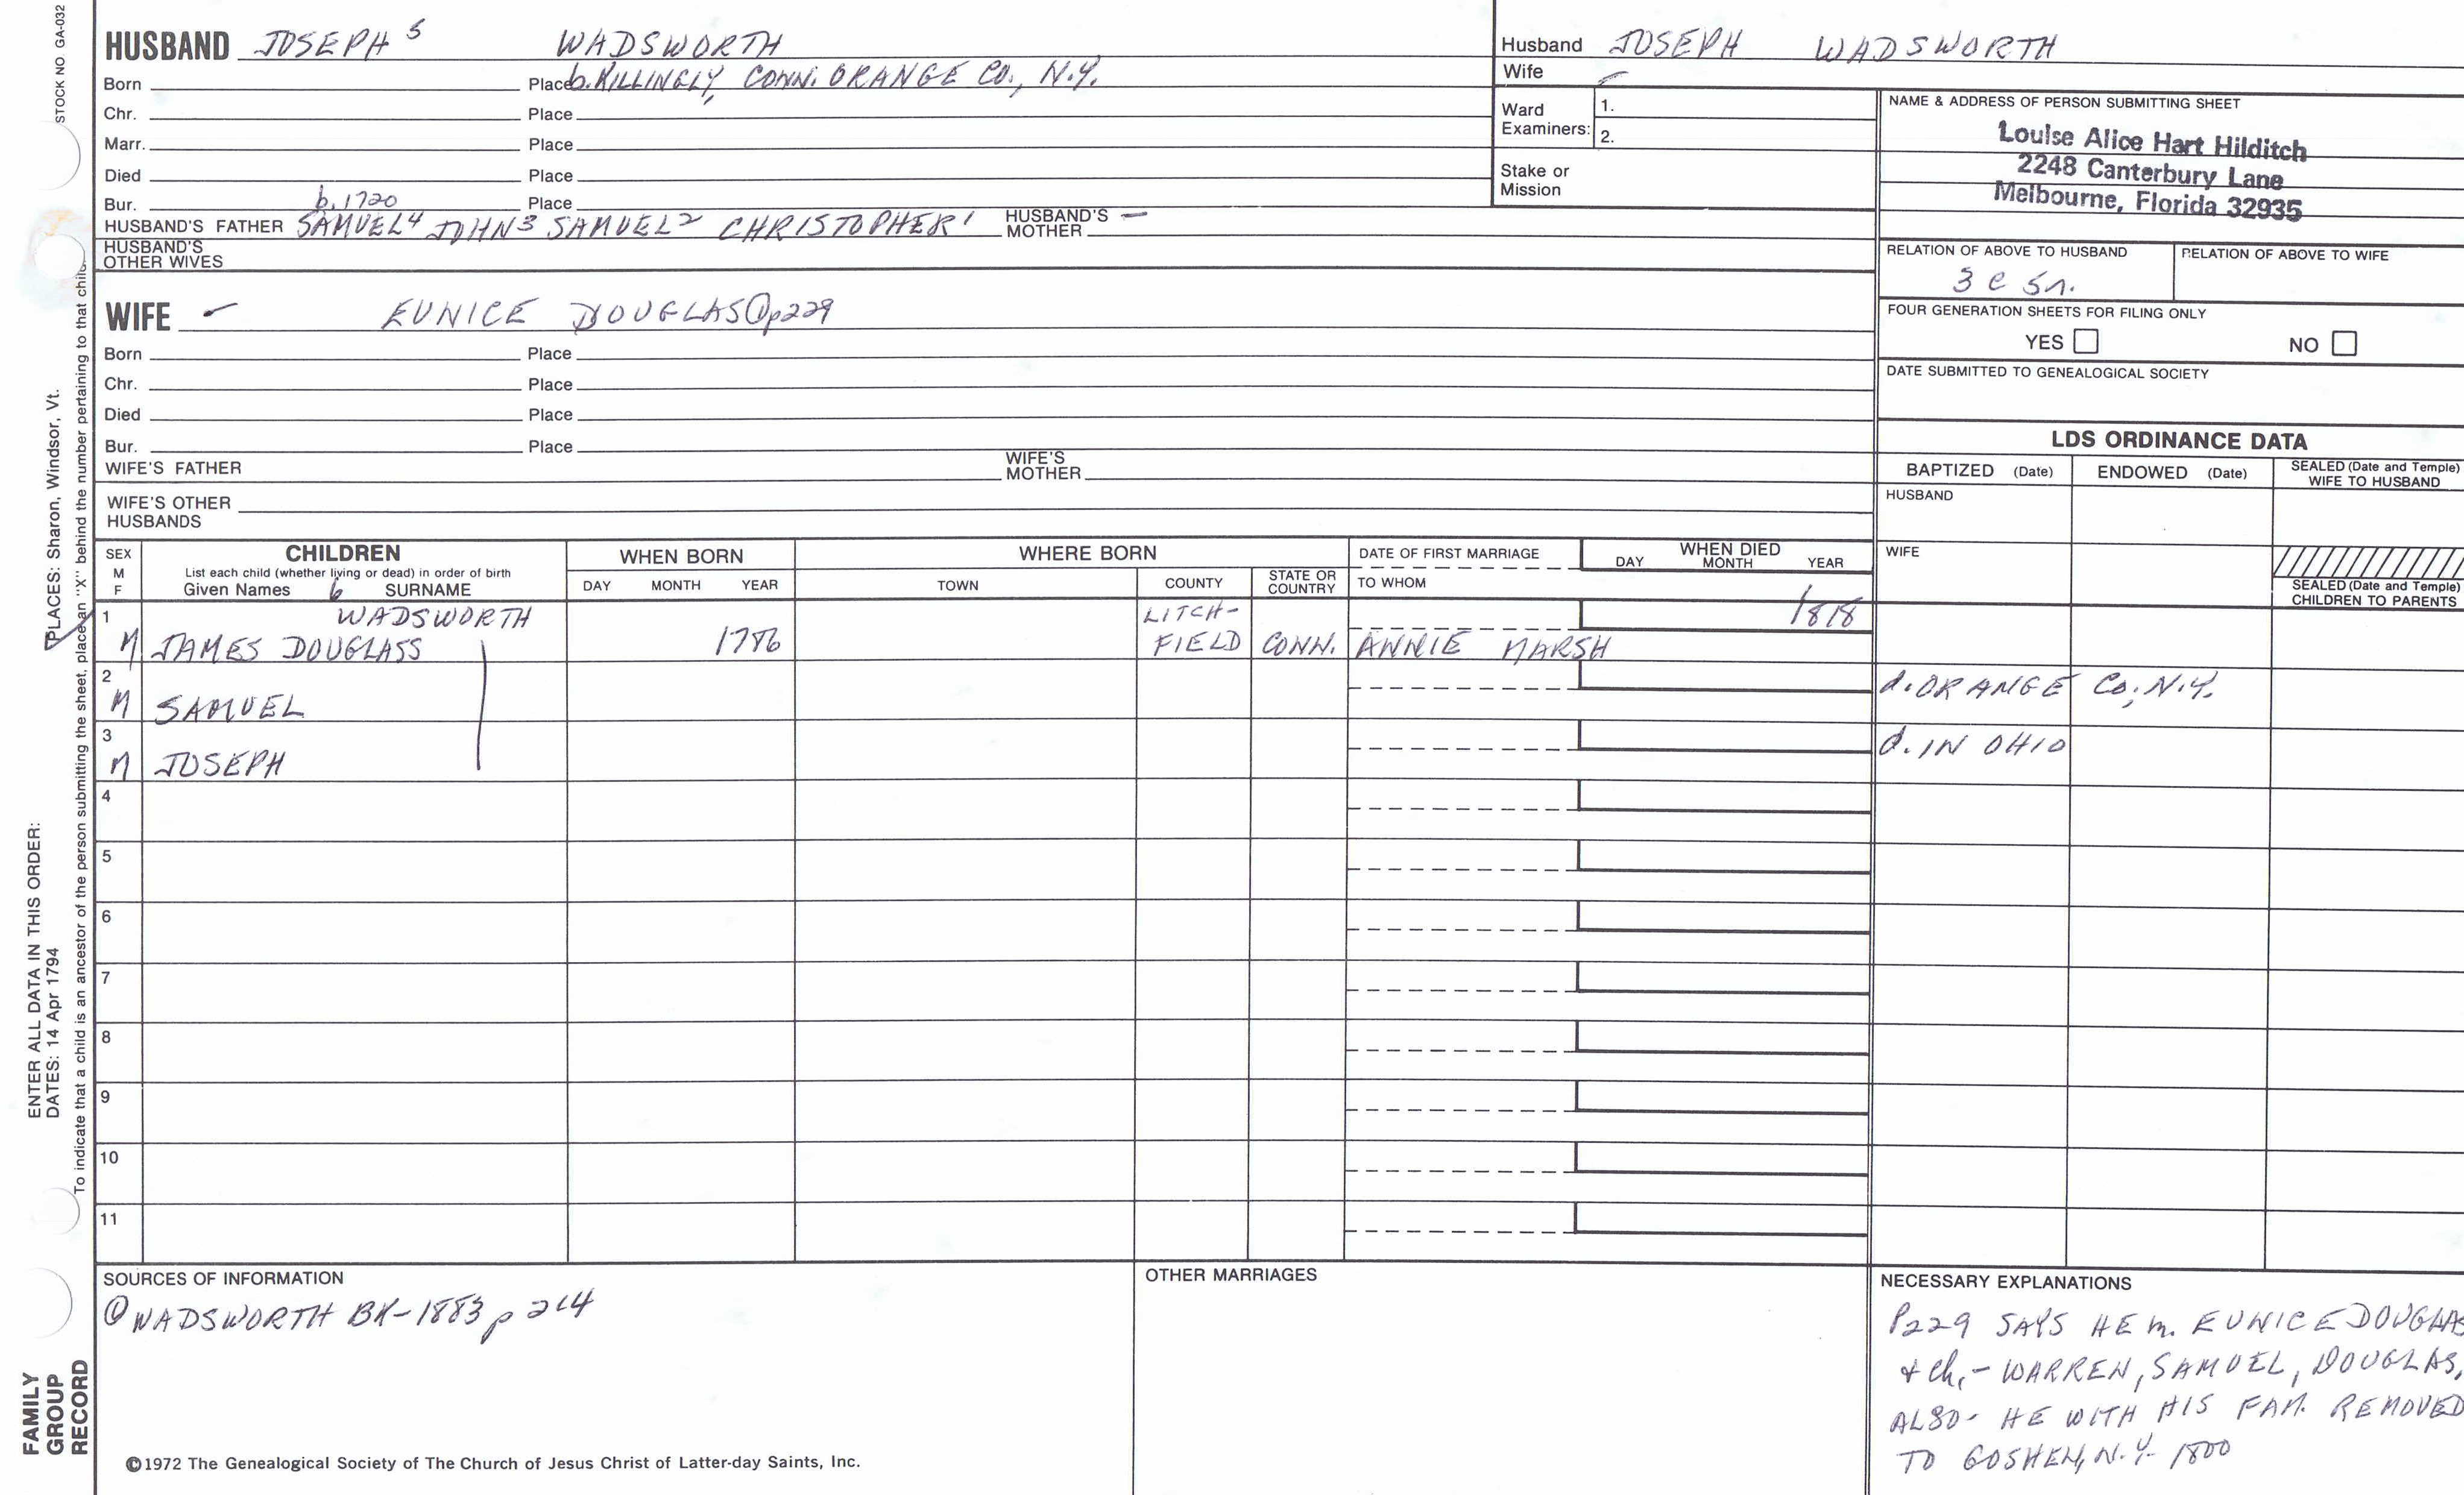 STOCK NO. GA-032
HUSBAND JOSEPH 5 WADSWORTH
Born Place b. KILLINGLY, CONN. ORANGE CO., N.Y.
Chr. Place
Marr. Place
Died Place
Bur. Place
b. 1720
HUSBAND'S FATHER SAMUEL4 JOHN3 SAMUEL2 CHRISTOPHER1 HUSBAND'S MOTHER –
HUSBAND'S OTHER WIVES
WIFE – EUNICE DOUGLAS ① p229
Born Place
Chr. Place
Died Place
Bur. Place
WIFE'S FATHER WIFE'S MOTHER
WIFE'S OTHER HUSBANDS
Husband JOSEPH WADSWORTH
Wife –
Ward Examiners: 1.
2.
Stake or Mission
NAME & ADDRESS OF PERSON SUBMITTING SHEET
Louise Alice Hart Hilditch
2248 Canterbury Lane
Melbourne, Florida 32935
RELATION OF ABOVE TO HUSBAND RELATION OF ABOVE TO WIFE
3 c 5r.
FOUR GENERATION SHEETS FOR FILING ONLY
YES NO
DATE SUBMITTED TO GENEALOGICAL SOCIETY
LDS ORDINANCE DATA
BAPTIZED (Date) ENDOWED (Date) SEALED (Date and Temple) WIFE TO HUSBAND
HUSBAND
WIFE
SEALED (Date and Temple) CHILDREN TO PARENTS
SEX M F
CHILDREN
List each child (whether living or dead) in order of birth
Given Names 6 SURNAME
WHEN BORN
DAY MONTH YEAR
WHERE BORN
TOWN COUNTY STATE OR COUNTRY
DATE OF FIRST MARRIAGE
TO WHOM
WHEN DIED
DAY MONTH YEAR
1 WADSWORTH LITCH- 1818
M JAMES DOUGLASS 1786 FIELD CONN. ANNIE MARSH
2
M SAMUEL d. ORANGE CO., N.Y.
3
M JOSEPH d. IN OHIO
4
5
6
7
8
9
10
11
SOURCES OF INFORMATION
① WADSWORTH BK-1883 p 214
OTHER MARRIAGES
NECESSARY EXPLANATIONS
P229 SAYS HE m. EUNICE DOUGLAS
+ ch,- WARREN, SAMUEL, DOUGLAS,
ALSO- HE WITH HIS FAM. REMOVED
TO GOSHEN, N.Y. 1800
©1972 The Genealogical Society of The Church of Jesus Christ of Latter-day Saints, Inc.
FAMILY
GROUP
RECORD
ENTER ALL DATA IN THIS ORDER:
DATES: 14 Apr 1794
PLACES: Sharon, Windsor, Vt.
To indicate that a child is an ancestor of the person submitting the sheet, place an "X" behind the number pertaining to that child.